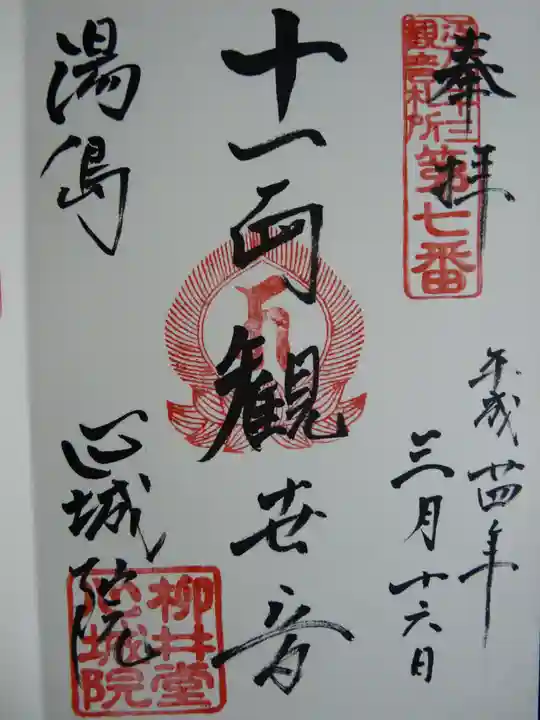 奉拝
江戸三十三
觀音札所
第七番
平成廿四年
三月十六日
十一面観世音
湯島
心城院
柳井堂
心城院